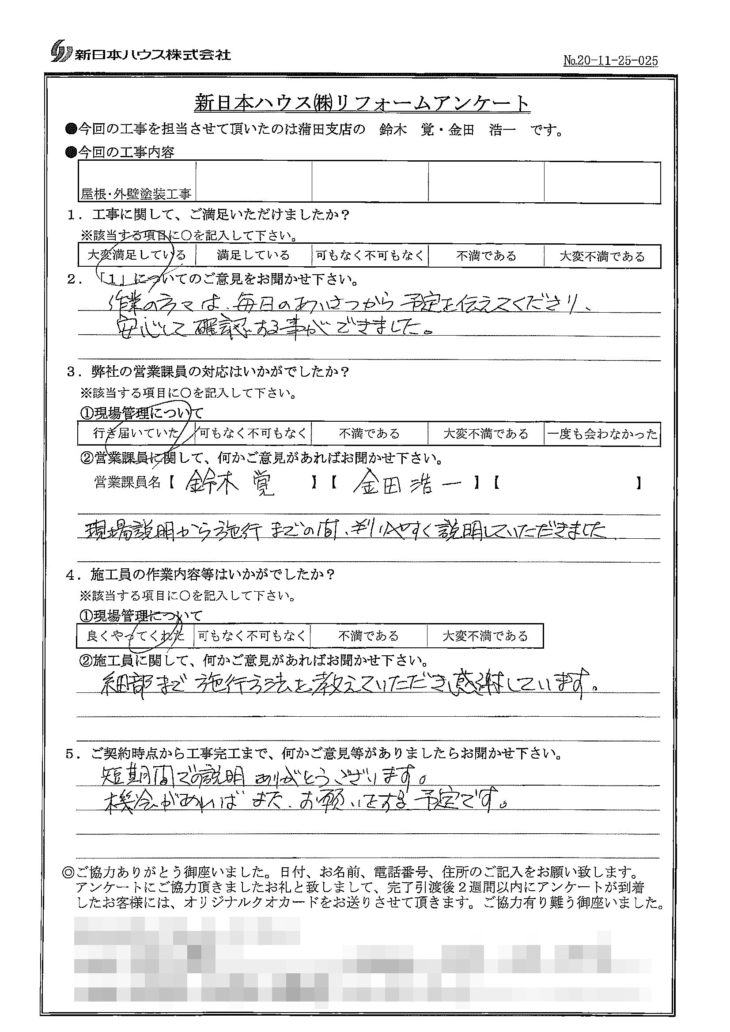 新日本ハウス株式会社
№20-11-25-025
新日本ハウス㈱リフォームアンケート
●今回の工事を担当させて頂いたのは蒲田支店の 鈴木 覚・金田 浩一 です。
●今回の工事内容
屋根・外壁塗装工事
1．工事に関して、ご満足いただけましたか？
※該当する項目に〇を記入して下さい。
大変満足している 満足している 可もなく不可もなく 不満である 大変不満である
2．「1」についてのご意見をお聞かせ下さい。
作業の方々は、毎日のあいさつから予定を伝えてくださり、
安心して確認する事ができました。
3．弊社の営業課員の対応はいかがでしたか？
※該当する項目に〇を記入して下さい。
①現場管理について
行き届いていた 可もなく不可もなく 不満である 大変不満である 一度も会わなかった
②営業課員に関して、何かご意見があればお聞かせ下さい。
営業課員名【 鈴木 覚 】【 金田 浩一 】【 】
現場説明から施行までの間、判りやすく説明していただきました
4．施工員の作業内容等はいかがでしたか？
※該当する項目に〇を記入して下さい。
①現場管理について
良くやってくれた 可もなく不可もなく 不満である 大変不満である
②施工員に関して、何かご意見があればお聞かせ下さい。
細部まで施行方法を教えていただき感謝しています。
5．ご契約時点から工事完工まで、何かご意見等がありましたらお聞かせ下さい。
短期間での説明ありがとうございます。
機会があればまた、お願いをする予定です。
◎ご協力ありがとう御座いました。日付、お名前、電話番号、住所のご記入をお願い致します。
アンケートにご協力頂きましたお礼と致しまして、完了引渡後２週間以内にアンケートが到着
したお客様には、オリジナルクオカードをお送りさせて頂きます。ご協力有り難う御座いました。